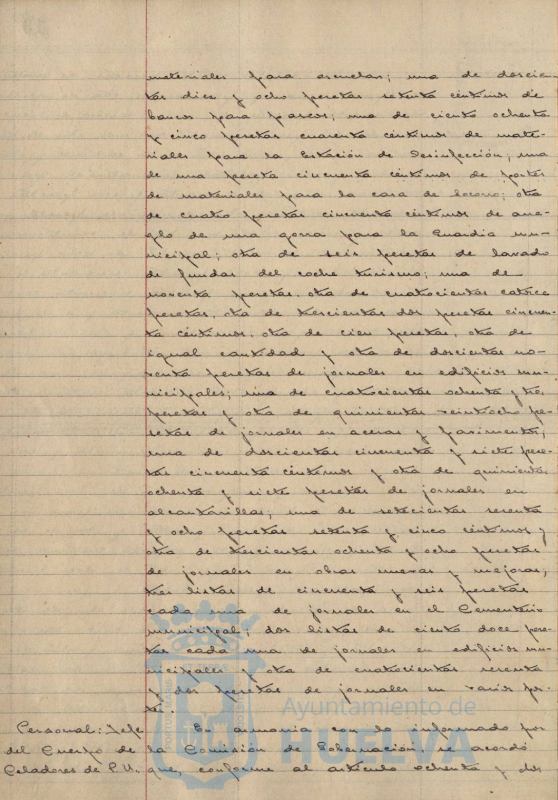 materiales para escuelas; una de doscien-
tas diez y ocho pesetas setenta céntimos de
bancos para paseos; una de ciento ochenta
y cinco pesetas cuarenta céntimos de mate-
riales para la Estación de Desinfección; una
de una peseta cincuenta céntimos de portes
de materiales para la casa de socorro; otra
de cuatro pesetas cincuenta céntimos de arre-
glo de una gorra para la Guardia mu-
nicipal; otra de seis pesetas de lavado
de fundas del coche turismo; una de
noventa pesetas, otra de cuatrocientas catorce
pesetas, otra de trescientas dos pesetas cincuen-
ta céntimos, otra de cien pesetas, otra de
igual cantidad y otra de doscientas no-
venta pesetas de jornales en edificios mu-
nicipales; una de cuatrocientas ochenta y tres
pesetas y otra de quinientas veintiocho pe-
setas de jornales en aceras y pavimentos;
una de doscientas cincuenta y siete pese-
tas cincuenta céntimos y otra de quinientas
ochenta y siete pesetas de jornales en
alcantarillas; una de setecientas sesenta
y ocho pesetas setenta y cinco céntimos y
otra de trescientas ochenta y ocho pesetas
de jornales en obras nuevas y mejoras;
tres listas de cincuenta y seis pesetas
cada una de jornales en el Cementerio
municipal; dos listas de ciento doce pese-
tas cada una de jornales en edificios mu-
nicipales y otra de cuatrocientas sesenta
y dos pesetas de jornales en varios
Personal: Jefe del Cuerpo de Celadores de P.U.
En armonía con lo informado por
la Comisión de Gobernación, se acordó
que, conforme al artículo ochenta y dos
Ayuntamiento de
HUELVA